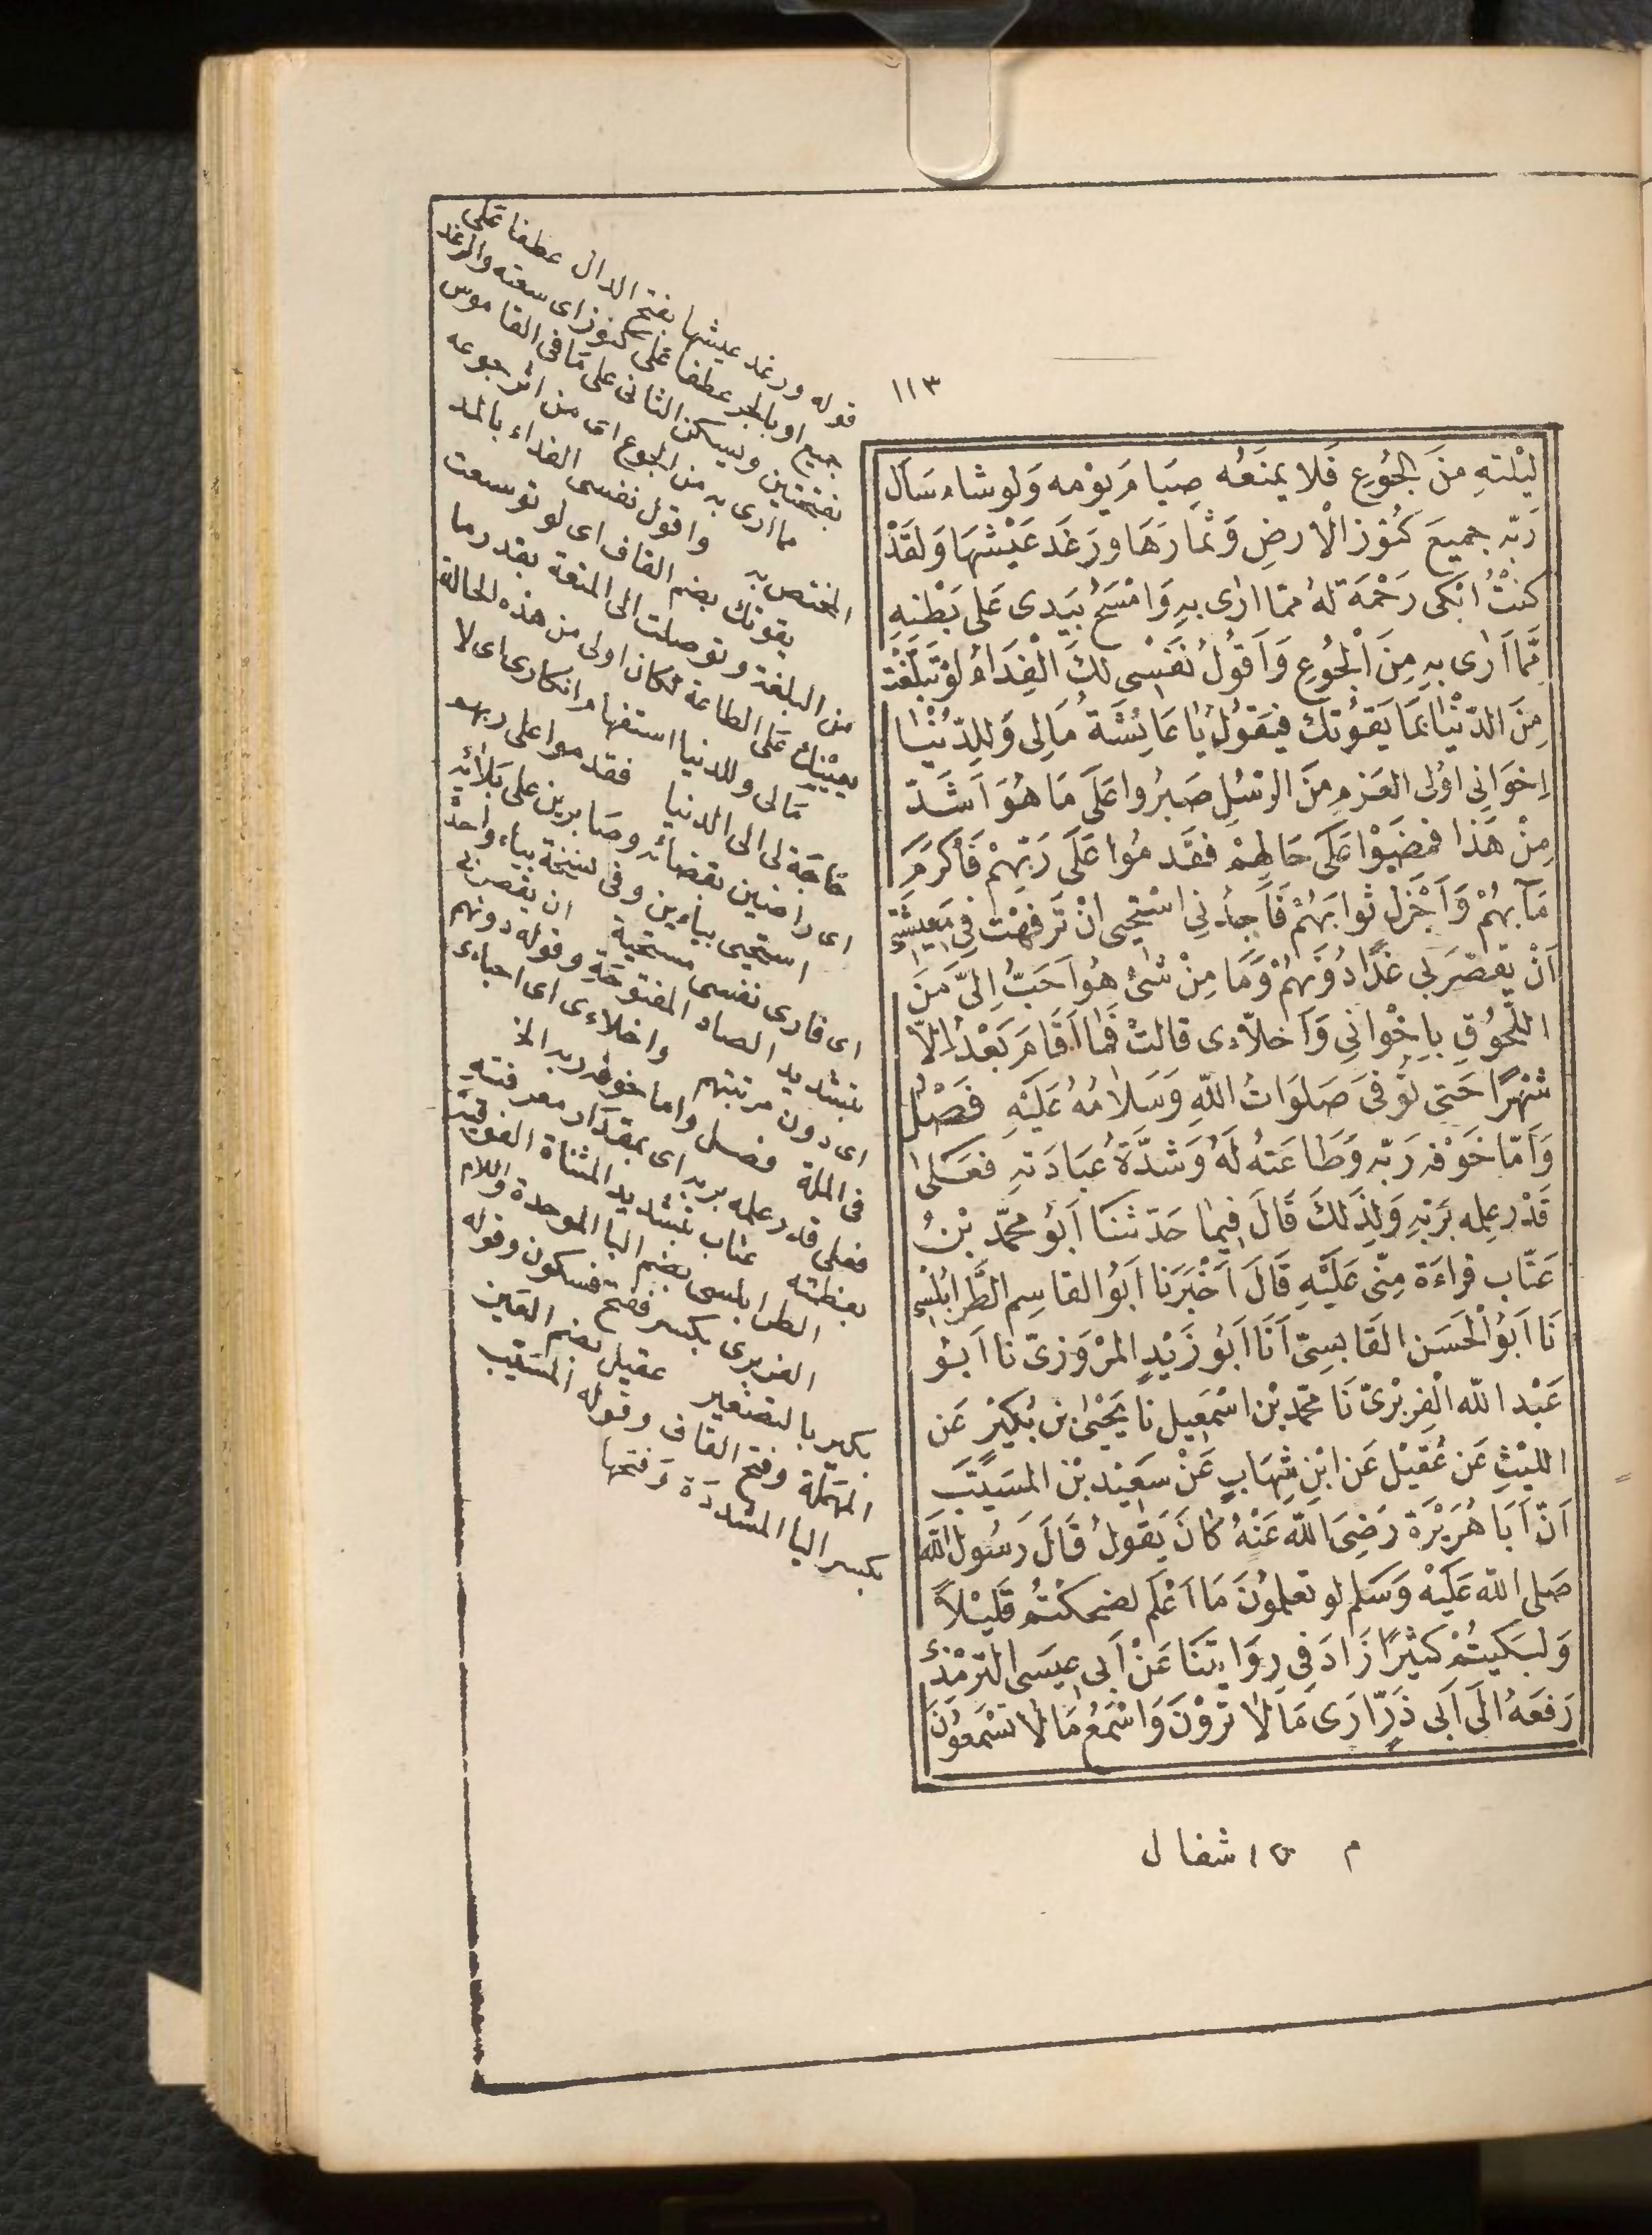 ١١٣
لَيْلتهِ مِنَ الجُوعِ فَلا يمنَعُه صِيَامَ يَوْمه وَلو شاء سَأل
رَبّه جميعَ كنُوز الْارضِ وَثمارَهَا ورَغَد عَيْشهَا وَلقَدْ
كنتُ ابْكى رَحْمَة لهُ ممّا ارٰى بهِ وَامْسَحُ بيَدى عَلى بَطْنهِ
مّما اَرٰى بهِ مِنَ الْجُوعِ وَاَقولُ نَفْسِى لكَ الْفِدَاءُ لوْ تَبَلّغْتَ
مِنَ الدّنْيا بمَا يَقوُتكَ فيَقوُلُ يَا عَايُشَةُ مَالِى وَللِدّنْيَا
اِخوَانِى اوُلى العَزمِ مِنَ الرّسُلِ صَبَرُوا عَلَى مَا هُوَ اَشَدّ
مِنْ هَذا فمَضَوْا عَلَى حَالِهمْ فقَدمُوا عَلَى رَبّهِمْ فَأكرَمَ
مَآبهُمْ وَاَجْزَل ثوابَهُمْ فَاَجِدُنِى اسْتَحْيِى انْ تَرَفهْتُ فِى مَعِيشَتِى
اَنْ يقصّرَ بِى غدًا دُونَهُمْ وَمَا مِنْ شْئ هُوَ اَحَبُّ اِلىّ مَنَ
اللّحُوُقِ بِاِخْوَانِى وَاَخلّاءِى قالتْ فمَا اَقَامَ بَعْدُ اِلّا
شهْرًا حَتى تُوفىَ صَلوَاتُ اللّهِ وَسَلامُهُ عَلَيْهِ فَصْلُ
وَاَمّا خَوْفه رَبّه وَطَاعَتهُ لَهُ وَشدَّةُ عبَادَتهِ فعَلىٰ
قَدْر عِلِمه بَربّهِ وَلِذَلكَ قَالَ فِيمَا حَدّثنَا اَبُو محمّد بْنُ
عَتّاب قراءَةً مِنّى عَلَيْهِ قَالَ اَخْبَرَنَا اَبُو القاسِم الطَّرابُلسِى
نَا اَبوُ الْحَسَن القَابسِىّ اَنَا اَبُو زَيْدٍ المرْوَزىّ نا اَبُو
عَبْد اللّه الْفِرَبْرىّ نَا محمّد بْن اسْمعِيل نا يَحْيىٰ بن بُكَيْر عَن
الليْثِ عَن عُقَيْل عَن ابْنِ شِهَابٍ عَنْ سَعِيْد بْن المسَيّبَ
اَنّ اَبَا هُرَيْرَة رَضِىَ اللّه عَنْهُ كانَ يَقولُ قَالَ رَسُول اللّه
صَلى اللّه عَلَيْهِ وَسَلم لو تعلموُنَ مَا اَعْلَم لضحكتُمْ قَلَيْلاً
وَلبَكيتُمْ كثيْرًا زَادَ فِى رِوَايَتنَا عَنْ اَبِى عِيسَى الترْمذِىّ
رَفعَهُ الَى اَبِى ذَرّ ارَى مَا لَا ترَوْنَ وَاسْمَعُ مَا لا تسْمَعوُنَ
قوله ورغد عيشها بفتح الدال عطفا عَلى
جميع او بالجر عطفا عَلى كنوز اى سعته والرغد
بفتحتين ويسكن الثانى على مَا فى القاموس
مما ارى به من الجوع اى من اثر جوعه
المختص به واقول نفسى الفداء بالمد
يقوتك بضم القاف اى لو توسعت
من البلغة وتوصلت الى المتعة بقدر ما
يعينك عَلى الطاعة لكان اولى من هذه الحالة
مَالى وللدنيا استفهام انكارى اى لا
حَاجَة لى الى الدنيا فقدموا على ربهم
اى راضين بقضائه وصَابرين على بَلائه
استحيى بياءين وفى نسخة بياء واحدة
اى فارى نفسى مستحية ان يقصر بى
بتشديد الصاد المفتوحة وقوله دونهم
اى دون مرتبتهم واخلاءى اى احباءى
فى الملة فصل واما خوفه ربه الخ
فعلى قدر علمه بربه اى بمقدار معرفته
بعظمته عتاب بتشديد المثناة الفوقية
الطرابلسى بضم البا الموحدة واللام
الفربرى بكسر ففتح فسكون وقوله
بكير بالتصغير عقيل بضم العَين
المهملة وفتح القاف وقوله المسَيّب
بكسر اليا المشددَة وَفتحها
م ١٥ شفا ل